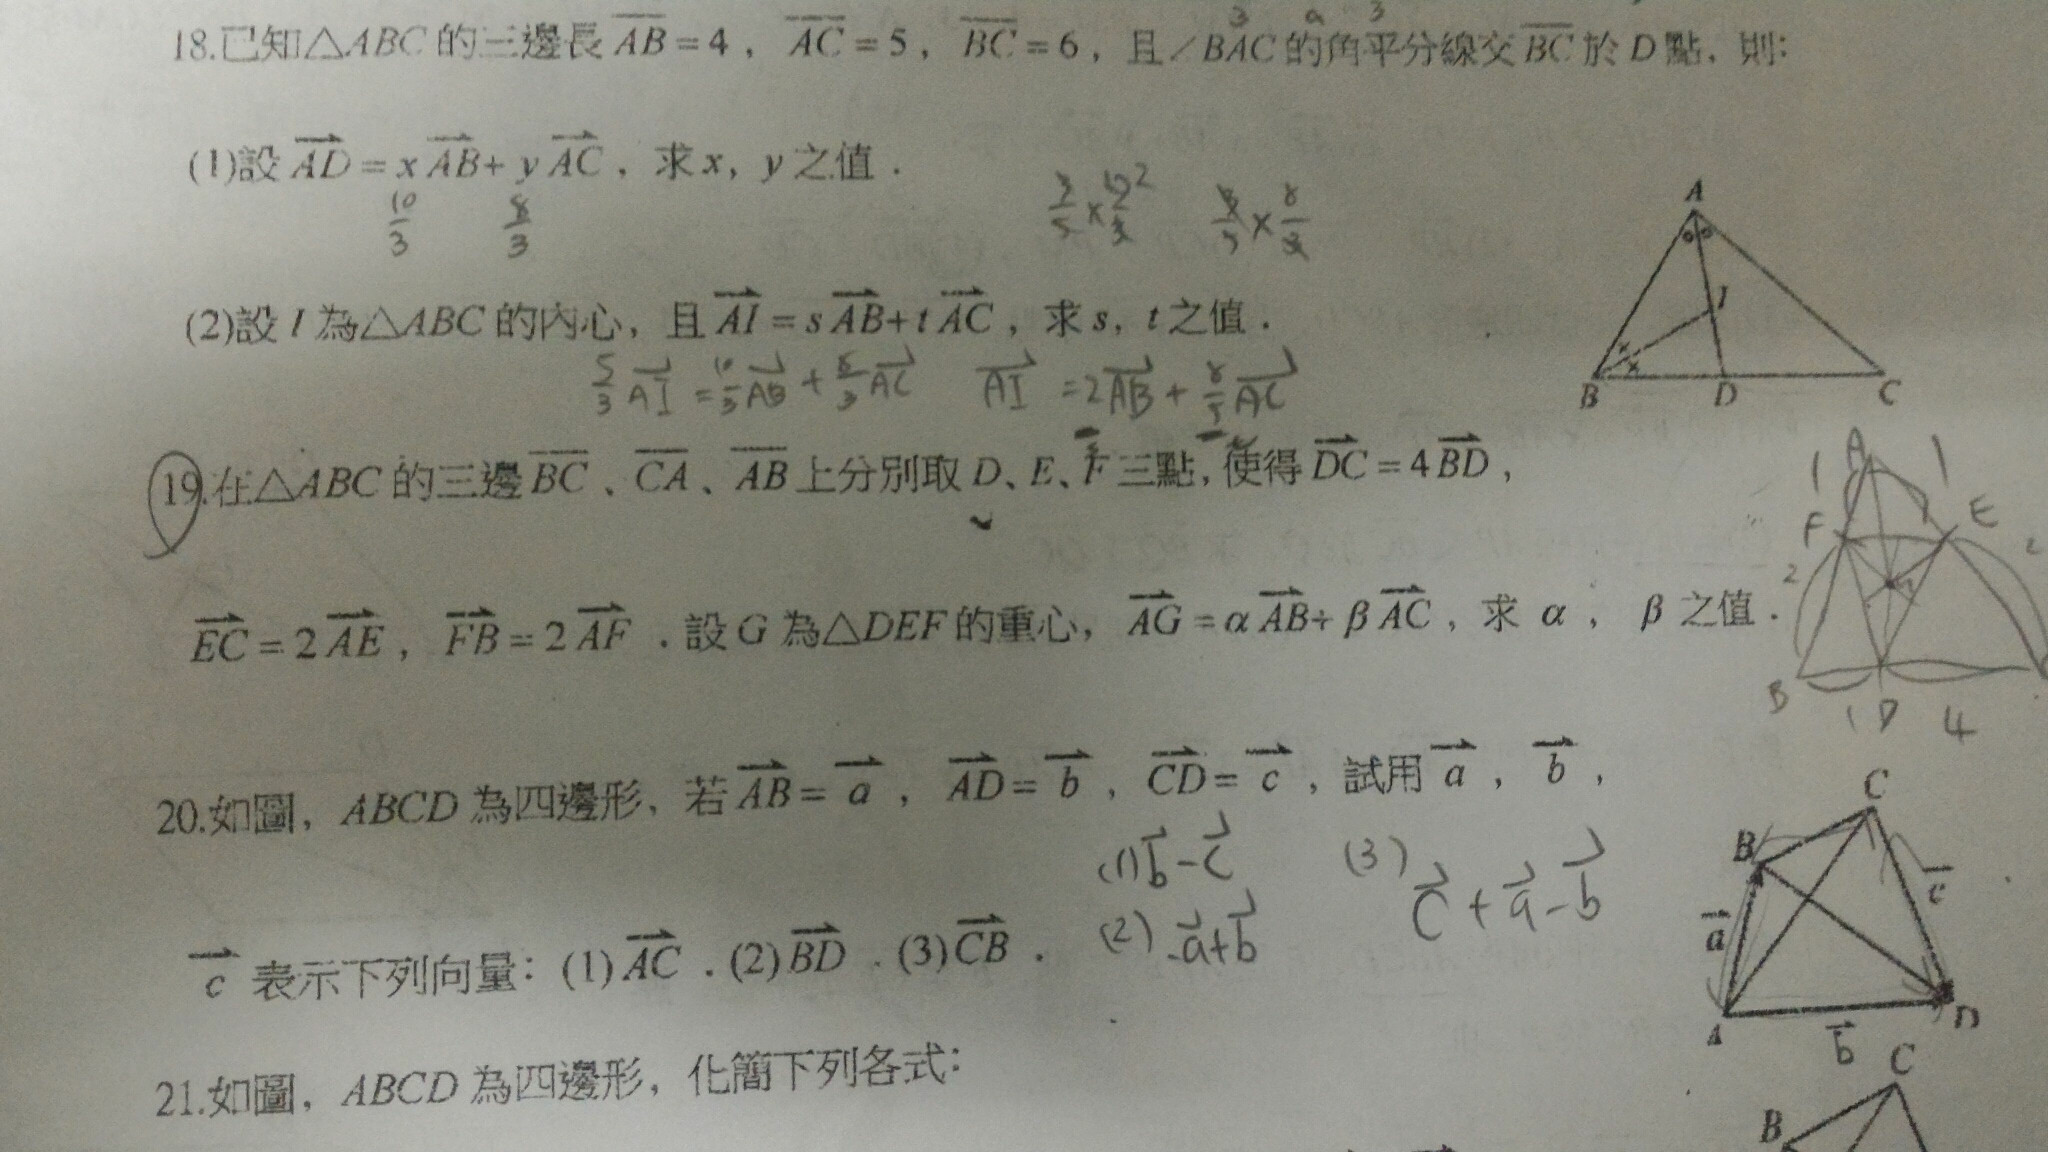 3 a 3
18.已知△ABC的三邊長AB=4，AC=5，BC=6，且∠BAC的角平分線交BC於D點，則：
(1)設AD=xAB+yAC，求x，y之值．
10/3 8/3
A
I
B D C
(2)設I為△ABC的內心，且AI=sAB+tAC，求s，t之值．
5/3 AI = 10/3 AB + 8/3 AC AI = 2AB + 8/5 AC
19.在△ABC的三邊BC、CA、AB上分別取D、E、F三點，使得DC=4BD，
EC=2AE，FB=2AF．設G為△DEF的重心，AG=αAB+βAC，求α，β之值．
1 A 1
F E
2 2
B 1 D 4
20.如圖，ABCD為四邊形，若AB=a，AD=b，CD=c，試用a，b，
c表示下列向量：(1)AC．(2)BD．(3)CB．
(1) b-c
(2) -a+b
(3) c+a-b
C
B c
a
A D
b
21.如圖，ABCD為四邊形，化簡下列各式：
C
B